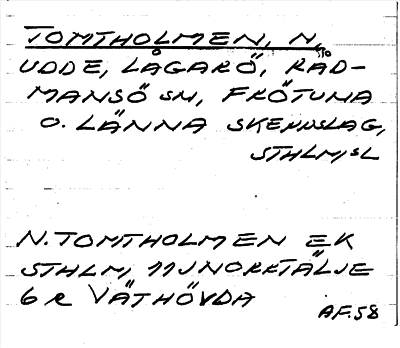 TOMTHOLMEN, N,
UDDE, LÅGARÖ, RÅD-
MANSÖ SN, FRÖTUNA
O. LÄNNA SKEPPSLAG,
STHLM, SL
N. TOMTHOLMEN EK
STHLM, 11J NORRTÄLJE
6 e VÄTHÖVDA
AF. 58